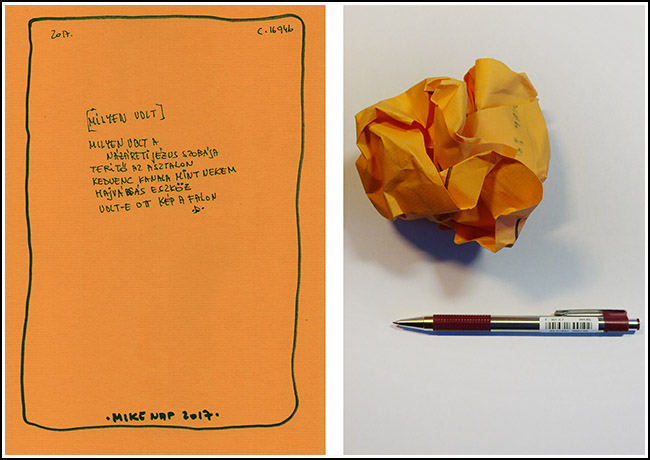 2017.
C.1694b
[MILYEN VOLT]
MILYEN VOLT A
NÁZÁRETI JÉZUS SZOBÁJA
TERÍTŐ AZ ASZTALON
KEDVENC KANALA MINT NEKEM
HAJVÁGÁS ESZKÖZ
VOLT-E OTT KÉP A FALON
·MIKE NAP 2017·